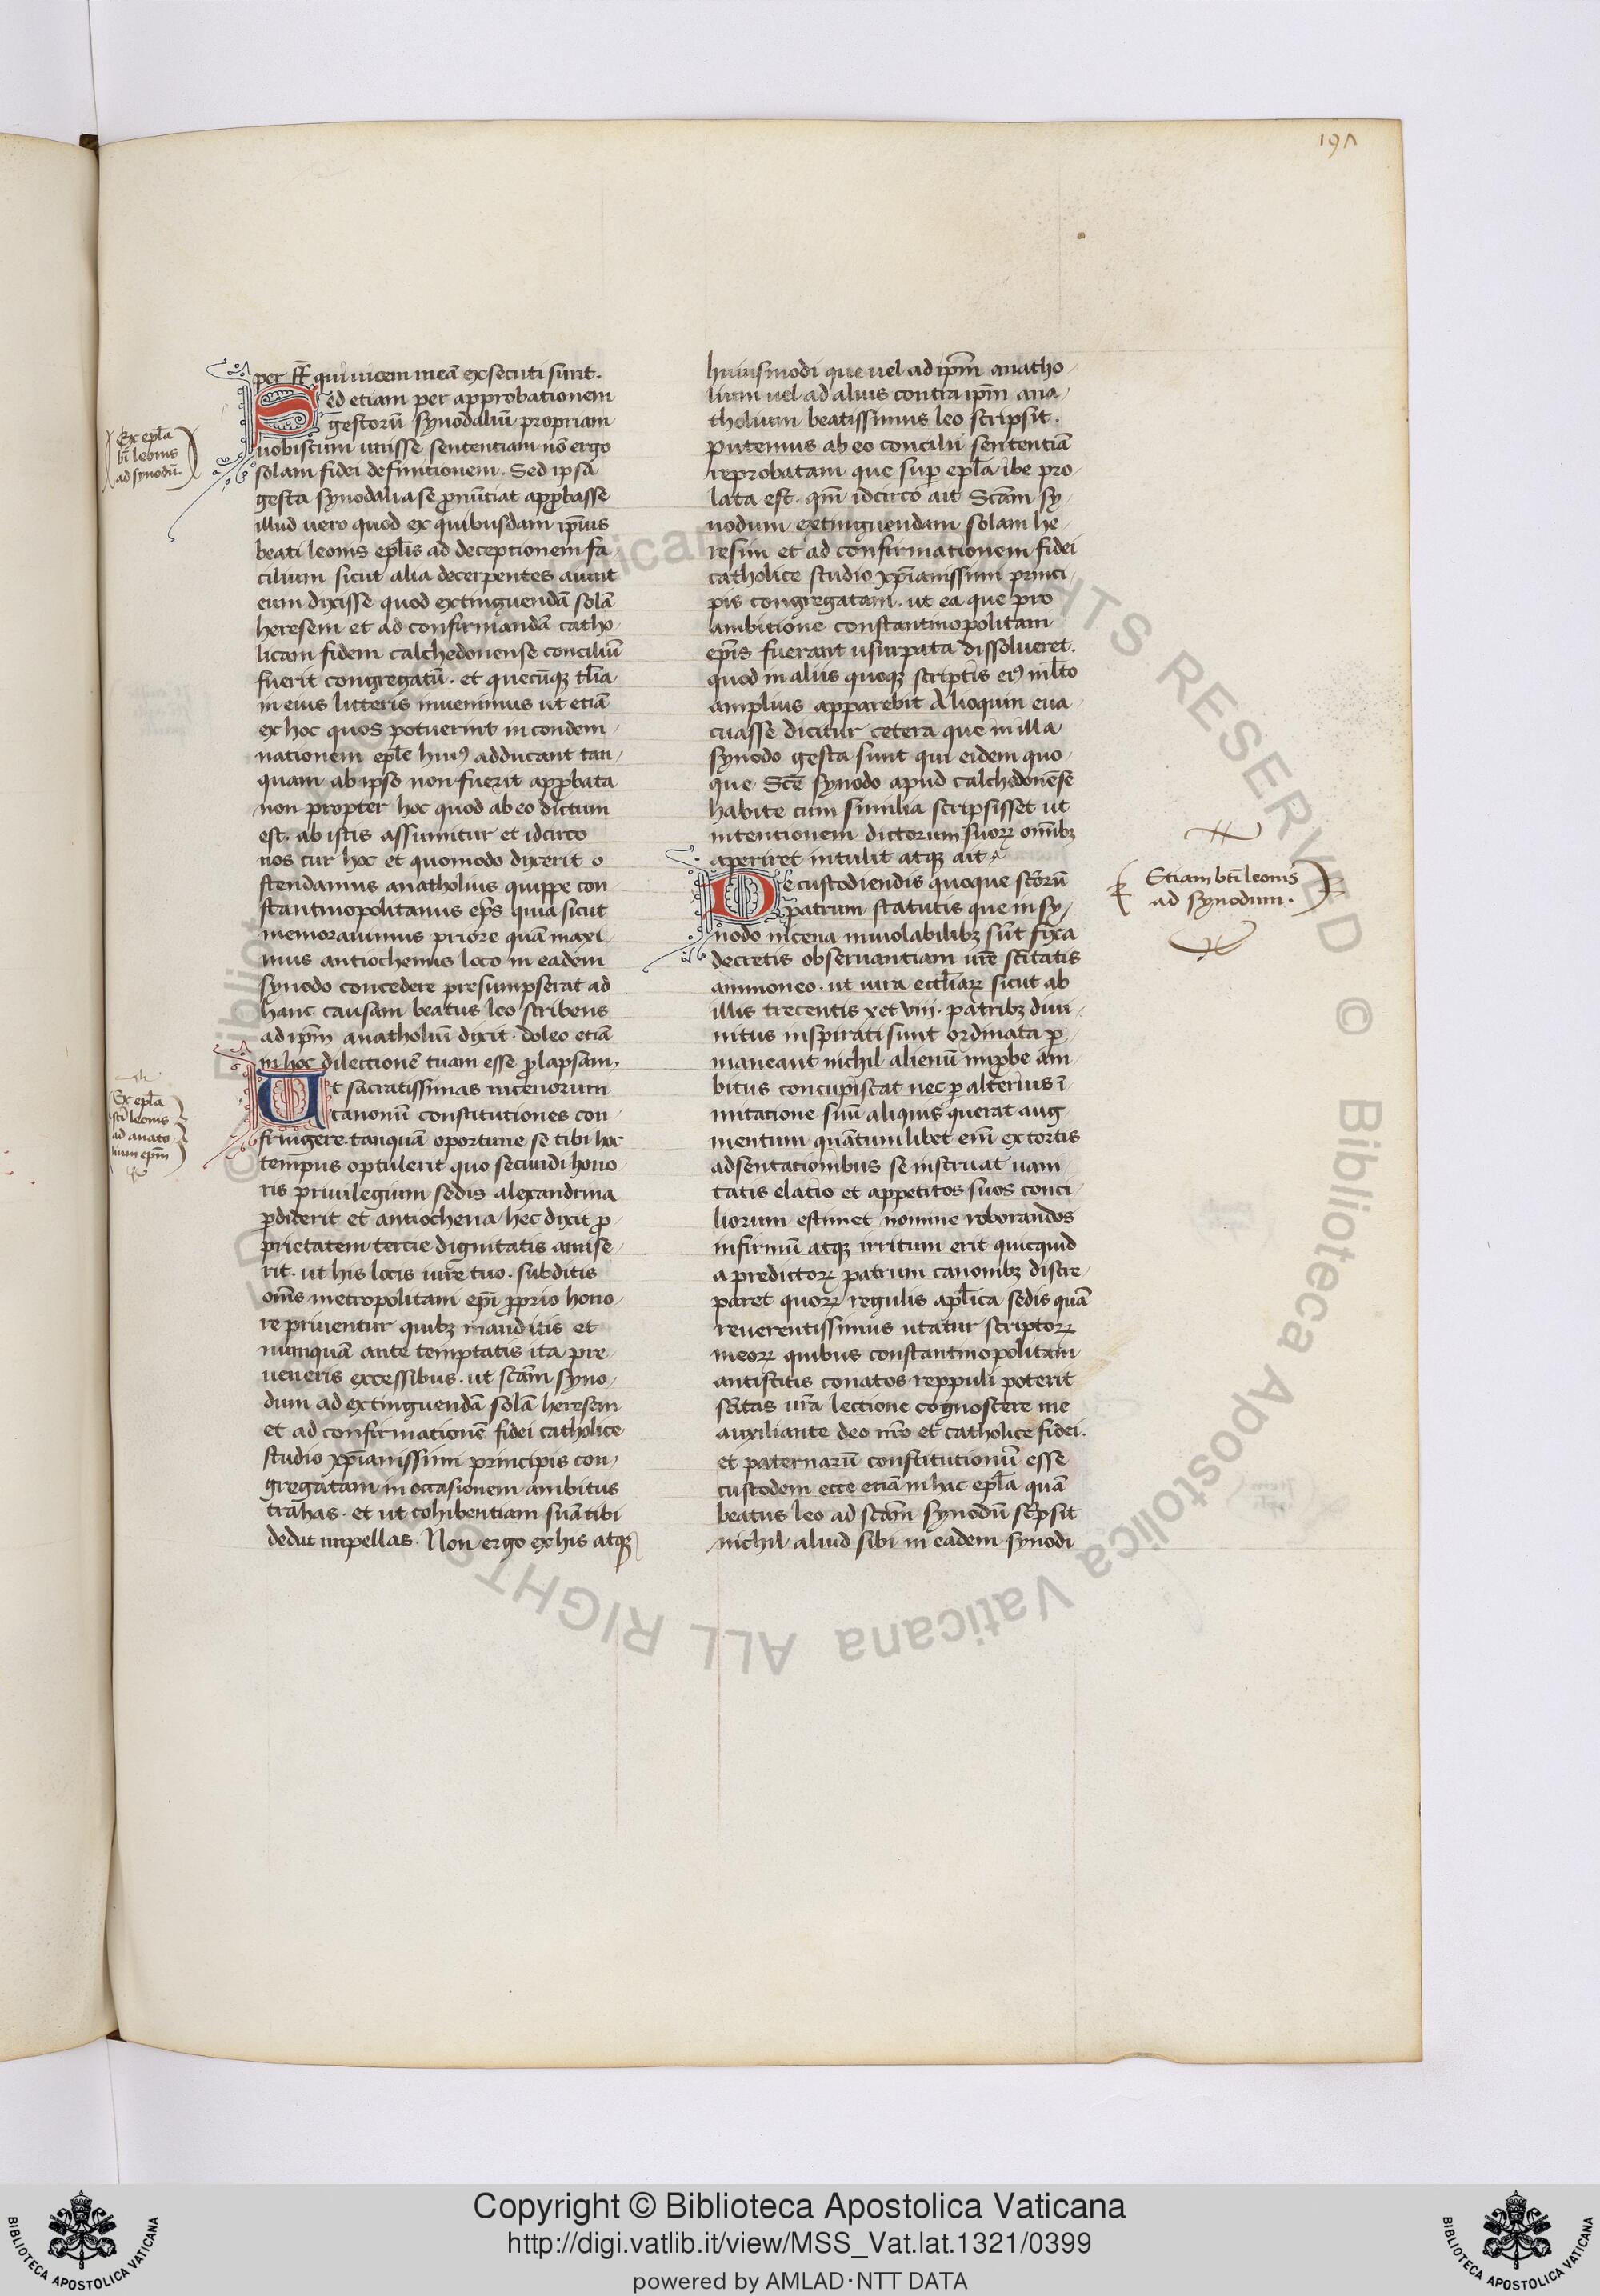 197
per ff̄ qui uicem meā exsecuti sunt.
Sed etiam per approbationem
gestorū synodaliū propriam
uobiscum iniisse sententiam nō ergo
solam fidei definitionem. Sed ipsa
gesta synodalia se ꝓnūciat apꝓbasse
illud uero quod ex quibusdam ip̄ius
beati leonis epl̄is ad deceptionem fa
cilium sicut alia decerpentes aiunt
eum dixisse quod extinguendā solā
heresem et ad confirmandā catho
licam fidem calchedonense conciliū
fuerit congregatū. et quecūqꝫ tl̄ia
in eius litteris inuenimus ut etiā
ex hoc quos potuerint in condem
nationem epl̄e huiꝰ adducant tan
quam ab ipso non fuerit apꝓbata
non propter hoc quod ab eo dictum
est. ab istis assumitur et idcirco
nos cur hoc et quomodo dixerit o
stendamus anatholius quippe con
stantinopolitanus ep̄s quia sicut
memorauimus priore quā maxi
mus antiochenus loco in eadem
synodo concedere presumpserat ad
hanc causam beatus leo scribens
ad ip̄m anatholiū dixit. doleo etiā
in hoc dilectionē tuam esse ꝓlapsam.
Ut sacratissimas nicenorum
canonū constitutiones con
fringere tanquā oportune se tibi hoc
tempus optulerit quo secundi hono
ris priuilegium sedis alexandrina
ꝑdiderit et antiochena hec dixit ꝓ
prietatem tercie dignitatis amise
rit. ut his locis iure tuo. subditis
om̄s metropolitani ep̄i ꝓprio hono
re priuentur quibꝫ inauditis et
nunquā ante temptatis ita pre
ueneris excessibus. ut scām syno
dum ad extinguendā solā heresem
et ad confirmationē fidei catholice
studio xp̄ianissimi principis con
gregatam in occasionem ambitus
trahas. et ut cohibentiam suā tibi
dedat inpellas. Non ergo ex his atqꝫ
Ex epl̄a
bī leonis
ad synodū.
Ex epl̄a
sc̄i leonis
ad anato
lium ep̄m
huiusmodi que uel ad ip̄m anatho
lium uel ad alius contra ip̄m ana
tholium beatissimus leo scripsit.
putemus ab eo concilii sententiā
reprobatam que suꝑ epl̄a ibe pro
lata est. qm̄ idcirco ait Scām sy
nodum extinguendam solam he
resim et ad confirmationem fidei
catholice studio xp̄ianissimi princi
pis congregatam. ut ea que pro
ambitione constantinopolitani
ep̄is fuerant usurpata dissolueret.
quod in aliis quoqꝫ scriptis eiꝰ ml̄to
amplius apparebit Alioquin eua
cuasse dicitur cetera que in illa
synodo gesta sunt qui eidem quo
que Scē synodo apud calchedonēse
habite cum similia scripsisset ut
intentionem dictorum suorꝝ om̄ibꝫ
aperiret intulit atqꝫ ait
De custodiendis quoque sc̄orū
patrum statutis que in sy
nodo nicena inuiolabilibꝫ sūt fixa
decretis obseruantiam ur̄e sc̄itatis
ammoneo. ut iura eccl̄iarꝝ sicut ab
illis trecentis x et viii. patribꝫ diui
nitus inspirati sunt ordinata ꝑ
maneant nichil alienū inꝓbe am
bitus concupiscat nec ꝑ alterius ī
mitatione suū aliquis querat aug
mentum quātum libet eni ex tortis
adsentationibus se instruat uani
tatis elatio et appetitos suos conci
liorum estimet nomine roborandos
infirmū atqꝫ irritum erit quicquid
a predictorꝝ patrum canonibꝫ discre
paret quorꝝ regulis apl̄ica sedis quā
reuerentissimus utatur scriptorꝝ
meorꝝ quibus constantinopolitani
antistitis conatos reppuli poterit
sc̄itas ur̄a lectione cognoscere me
auxiliante deo nr̄o et catholice fidei.
et paternarū constitutionū esse
custodem ecce etiā in hac epl̄a quā
beatus leo ad scām synodū scͥpsit
nichil aliud sibi in eadem synodi
Etiam bt̄i leonis
ad synodum.
© Biblioteca Apostolica Vaticana ALL RIGHTS RESERVED
Copyright © Biblioteca Apostolica Vaticana
http://digi.vatlib.it/view/MSS_Vat.lat.1321/0399
powered by AMLAD·NTT DATA
BIBLIOTECA APOSTOLICA VATICANA
BIBLIOTECA APOSTOLICA VATICANA